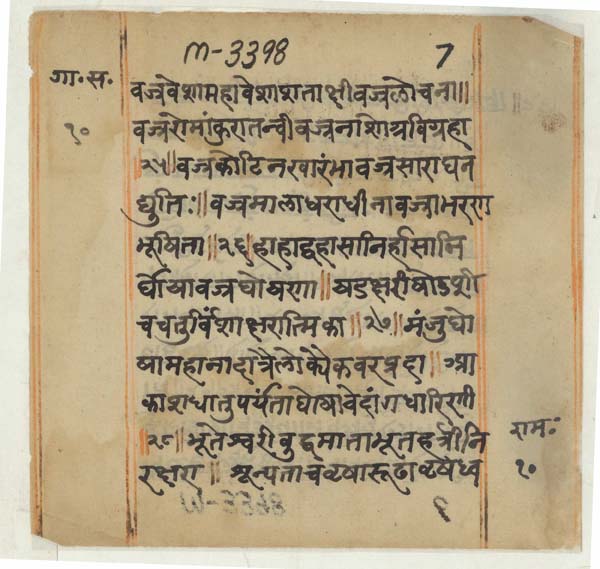 m-3398 7
गा॰स॰
१०
वज्रवेशामहावेशाशताक्षीवज्रलोचना॥
वज्ररोमांकुरातन्वीवज्रनाशाग्रविग्रहा
॥२५॥वज्रकोटिनखारंभावज्रसाराघन
द्युतिः॥वज्रमालाधराधीनावज्राभरण
भूषिता॥२६॥हाहाट्टहासानिर्हासानि
र्घोषावज्रघोषणा॥षडक्षरीषोडशी
चचतुर्विंशाक्षरात्मिका॥२७॥मंजुघो
षामहानादात्रैलोक्यैकवरप्रदा॥आ
काशधातुपर्यंताघोषावेदांगधारिणी
॥२८॥भूतेश्वरीबुद्धमाताभूतहर्त्रीनि
रक्षरा॥शून्यताच
रामः
१०